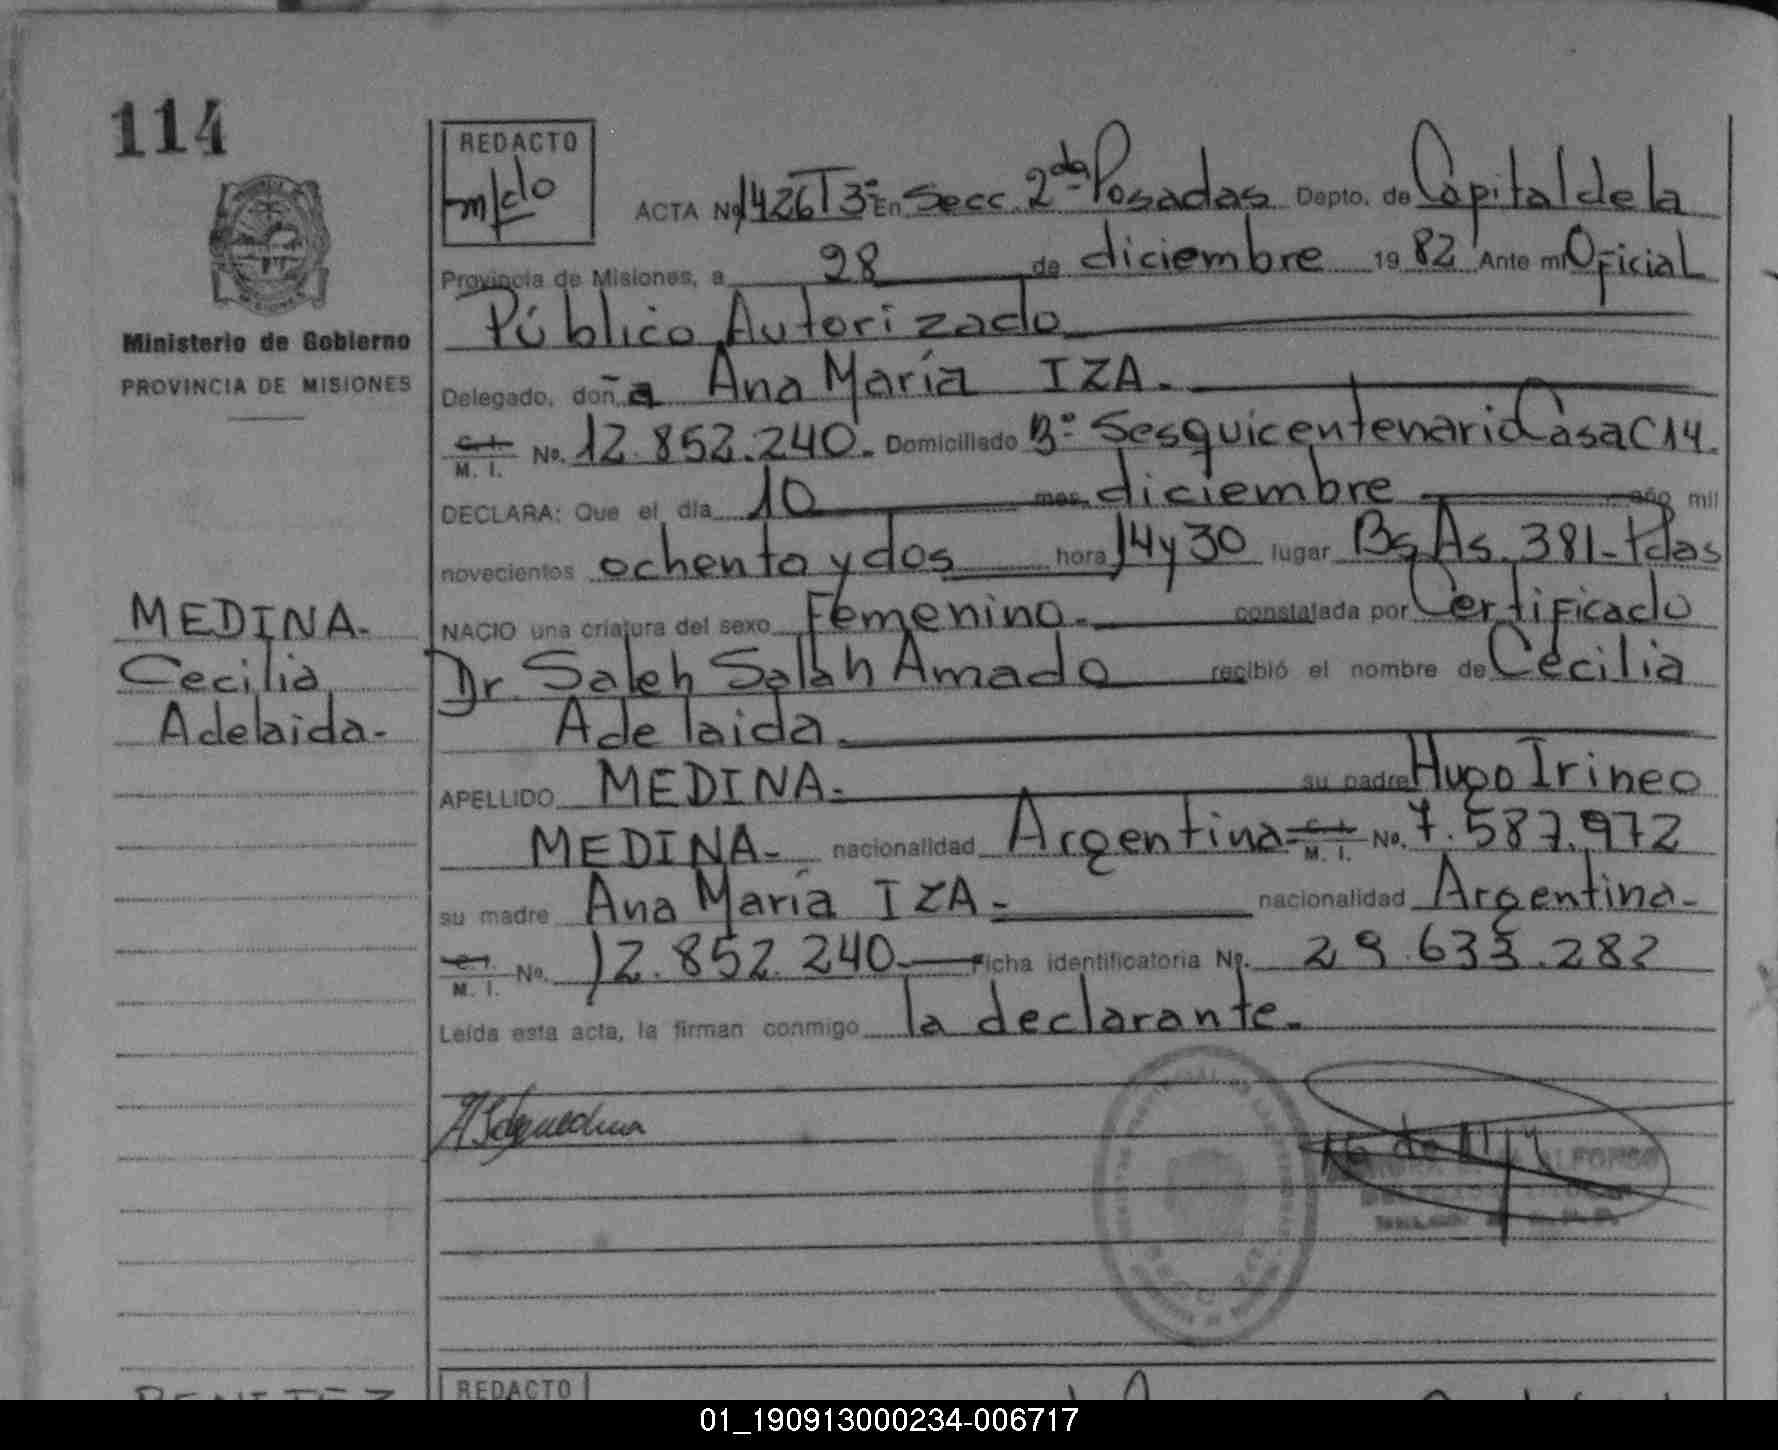 114
REDACTO
m/do
ACTA No 1426 T3º En Secc. 2da Posadas Depto. de Capital de la
Provincia de Misiones, a 28 de diciembre 19 82 Ante mi Oficial
Público Autorizado
Ministerio de Gobierno
PROVINCIA DE MISIONES
Delegado, doña Ana María IZA.
C. I. M. I. No. 12.852.240. Domiciliado Bº Sesquicentenario Casa C14.
DECLARA: Que el día 10 mes diciembre año mil
novecientos ochenta y dos hora 14 y 30 lugar Bs As. 381 - Pdas
MEDINA.
Cecilia
Adelaida-
NACIO una criatura del sexo Femenino. constatada por Certificado
Dr. Saleh Salah Amado recibió el nombre de Cecilia
Adelaida.
APELLIDO MEDINA. su padre Hugo Irineo
MEDINA- nacionalidad Argentina C. I. M. I. No. 7.587.972
su madre Ana María IZA- nacionalidad Argentina-
C. I. M. I. No. 12.852.240 Ficha identificatoria No. 29.633.282
Leída esta acta, la firman conmigo la declarante.
ALFONSO
REDACTO
BENITEZ
01_190913000234-006717